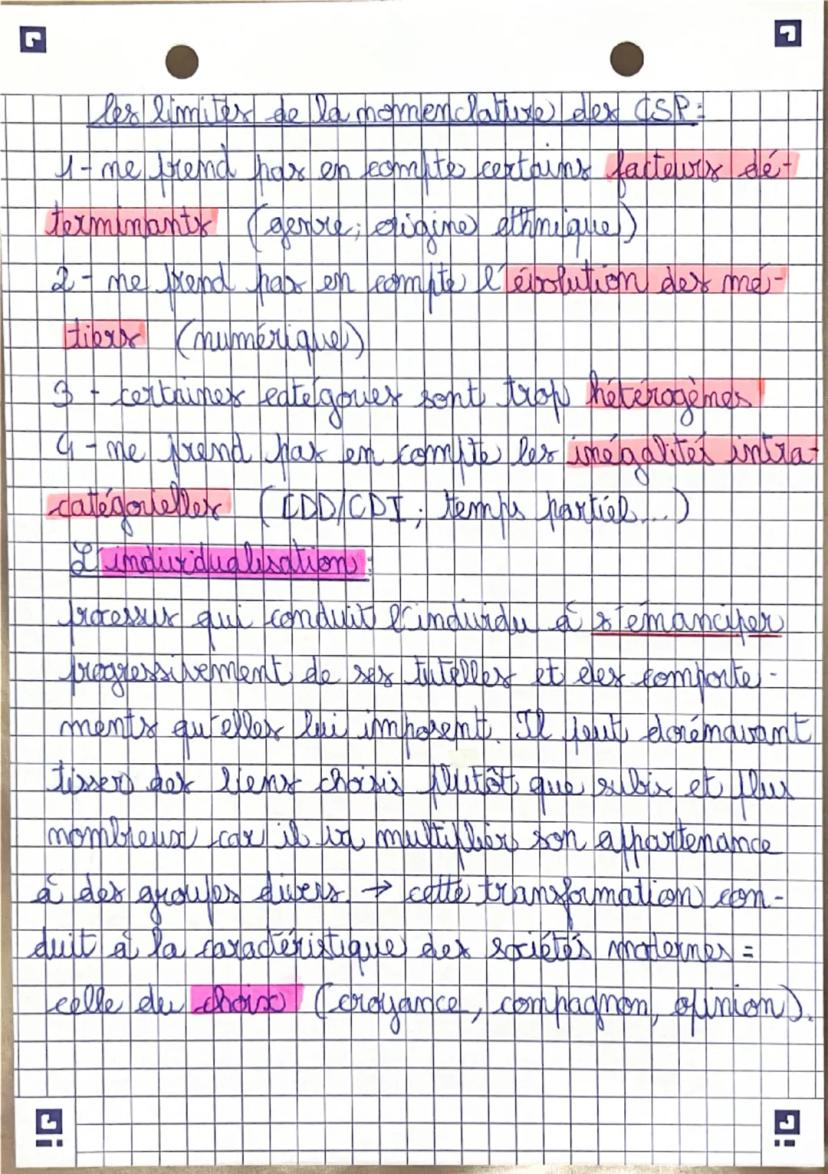 les limites de la nomenclature des CSP :
1 - ne prend pas en compte certains facteurs dé-
terminants (genre ; origine ethnique)
2 - ne prend pas en compte l'évolution des mé-
tiers (numérique)
3 - certaines catégories sont trop hétérogènes
4 - ne prend pas en compte les inégalités intra-
catégorielles (CDD/CDI ; temps partiel...)
L'individualisation :
processus qui conduit l'individu à s'émanciper
progressivement de ses tutelles et des comporte-
ments qu'elles lui imposent. Il peut dorénavant
tisser des liens choisis plutôt que subis et plus
nombreux car il va multiplier son appartenance
à des groupes divers. → cette transformation con-
duit à la caractéristique des sociétés modernes =
celle du choix (croyance, compagnon, opinion).